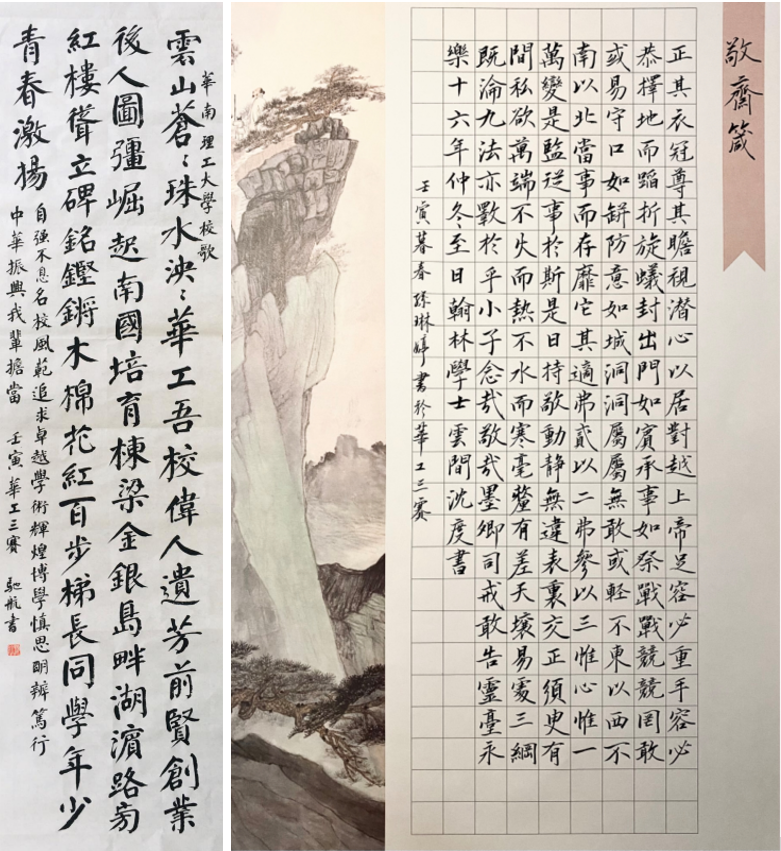 華南理工大學校歌
雲山蒼〻珠水泱〻華工吾校偉人遺芳前賢創業
後人圖彊崛起南國培育棟梁金銀島畔湖濱路旁
紅樓聳立碑銘鏗鏘木棉花紅百步梯長同學年少
青春激揚
自强不息名校風範追求卓越學術輝煌博學慎思明辨篤行
中華振興我輩擔當 壬寅華工三賽 馳航書
敬齋箴
正其衣冠尊其瞻視潛心以居對越上帝足容必重手容必
恭擇地而蹈折旋蟻封出門如賓承事如祭戰戰兢兢罔敢
或易守口如缾防意如城洞洞屬屬無敢或輕不東以西不
南以北當事而存靡它其適弗貳以二弗參以三惟心惟一
萬變是監從事於斯是曰持敬動静無違表裏交正須臾有
間私欲萬端不火而熱不水而寒毫釐有差天壤易處三綱
既淪九法亦斁於乎小子念哉敬哉墨卿司戒敢告靈臺永
樂十六年仲冬至日翰林學士雲間沈度書
壬寅暮春 琳婷書於華工三賽